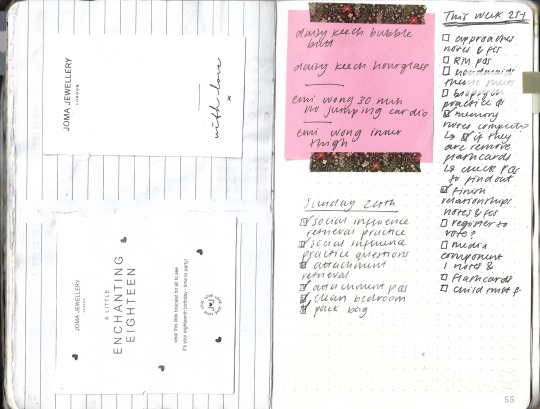 JOMA JEWELLERY
LONDON
with love
x
JOMA JEWELLERY
LONDON
A LITTLE
ENCHANTING
EIGHTEEN
wear this little bracelet for all to see
it's your eighteenth birthday - time to party!
daisy keech bubble
butt
daisy keech hourglass
emi wong 30 min
no jumping cardio
emi wong inner
thigh
Sunday 24th
social influence
retrieval practice
social influence
practice questions
attachment
retrieval
attachment pqs
clean bedroom
pack bag
This week 25th
approaches
notes & fcs
RM pqs
handmaids
biopsych
practice q
memory
notes complete?
↳ if they
are remove
flashcards
↳ check pqs
to find out
finish
relationships
notes & fcs
register to
vote?
media
component
1 notes &
flashcards
child
55